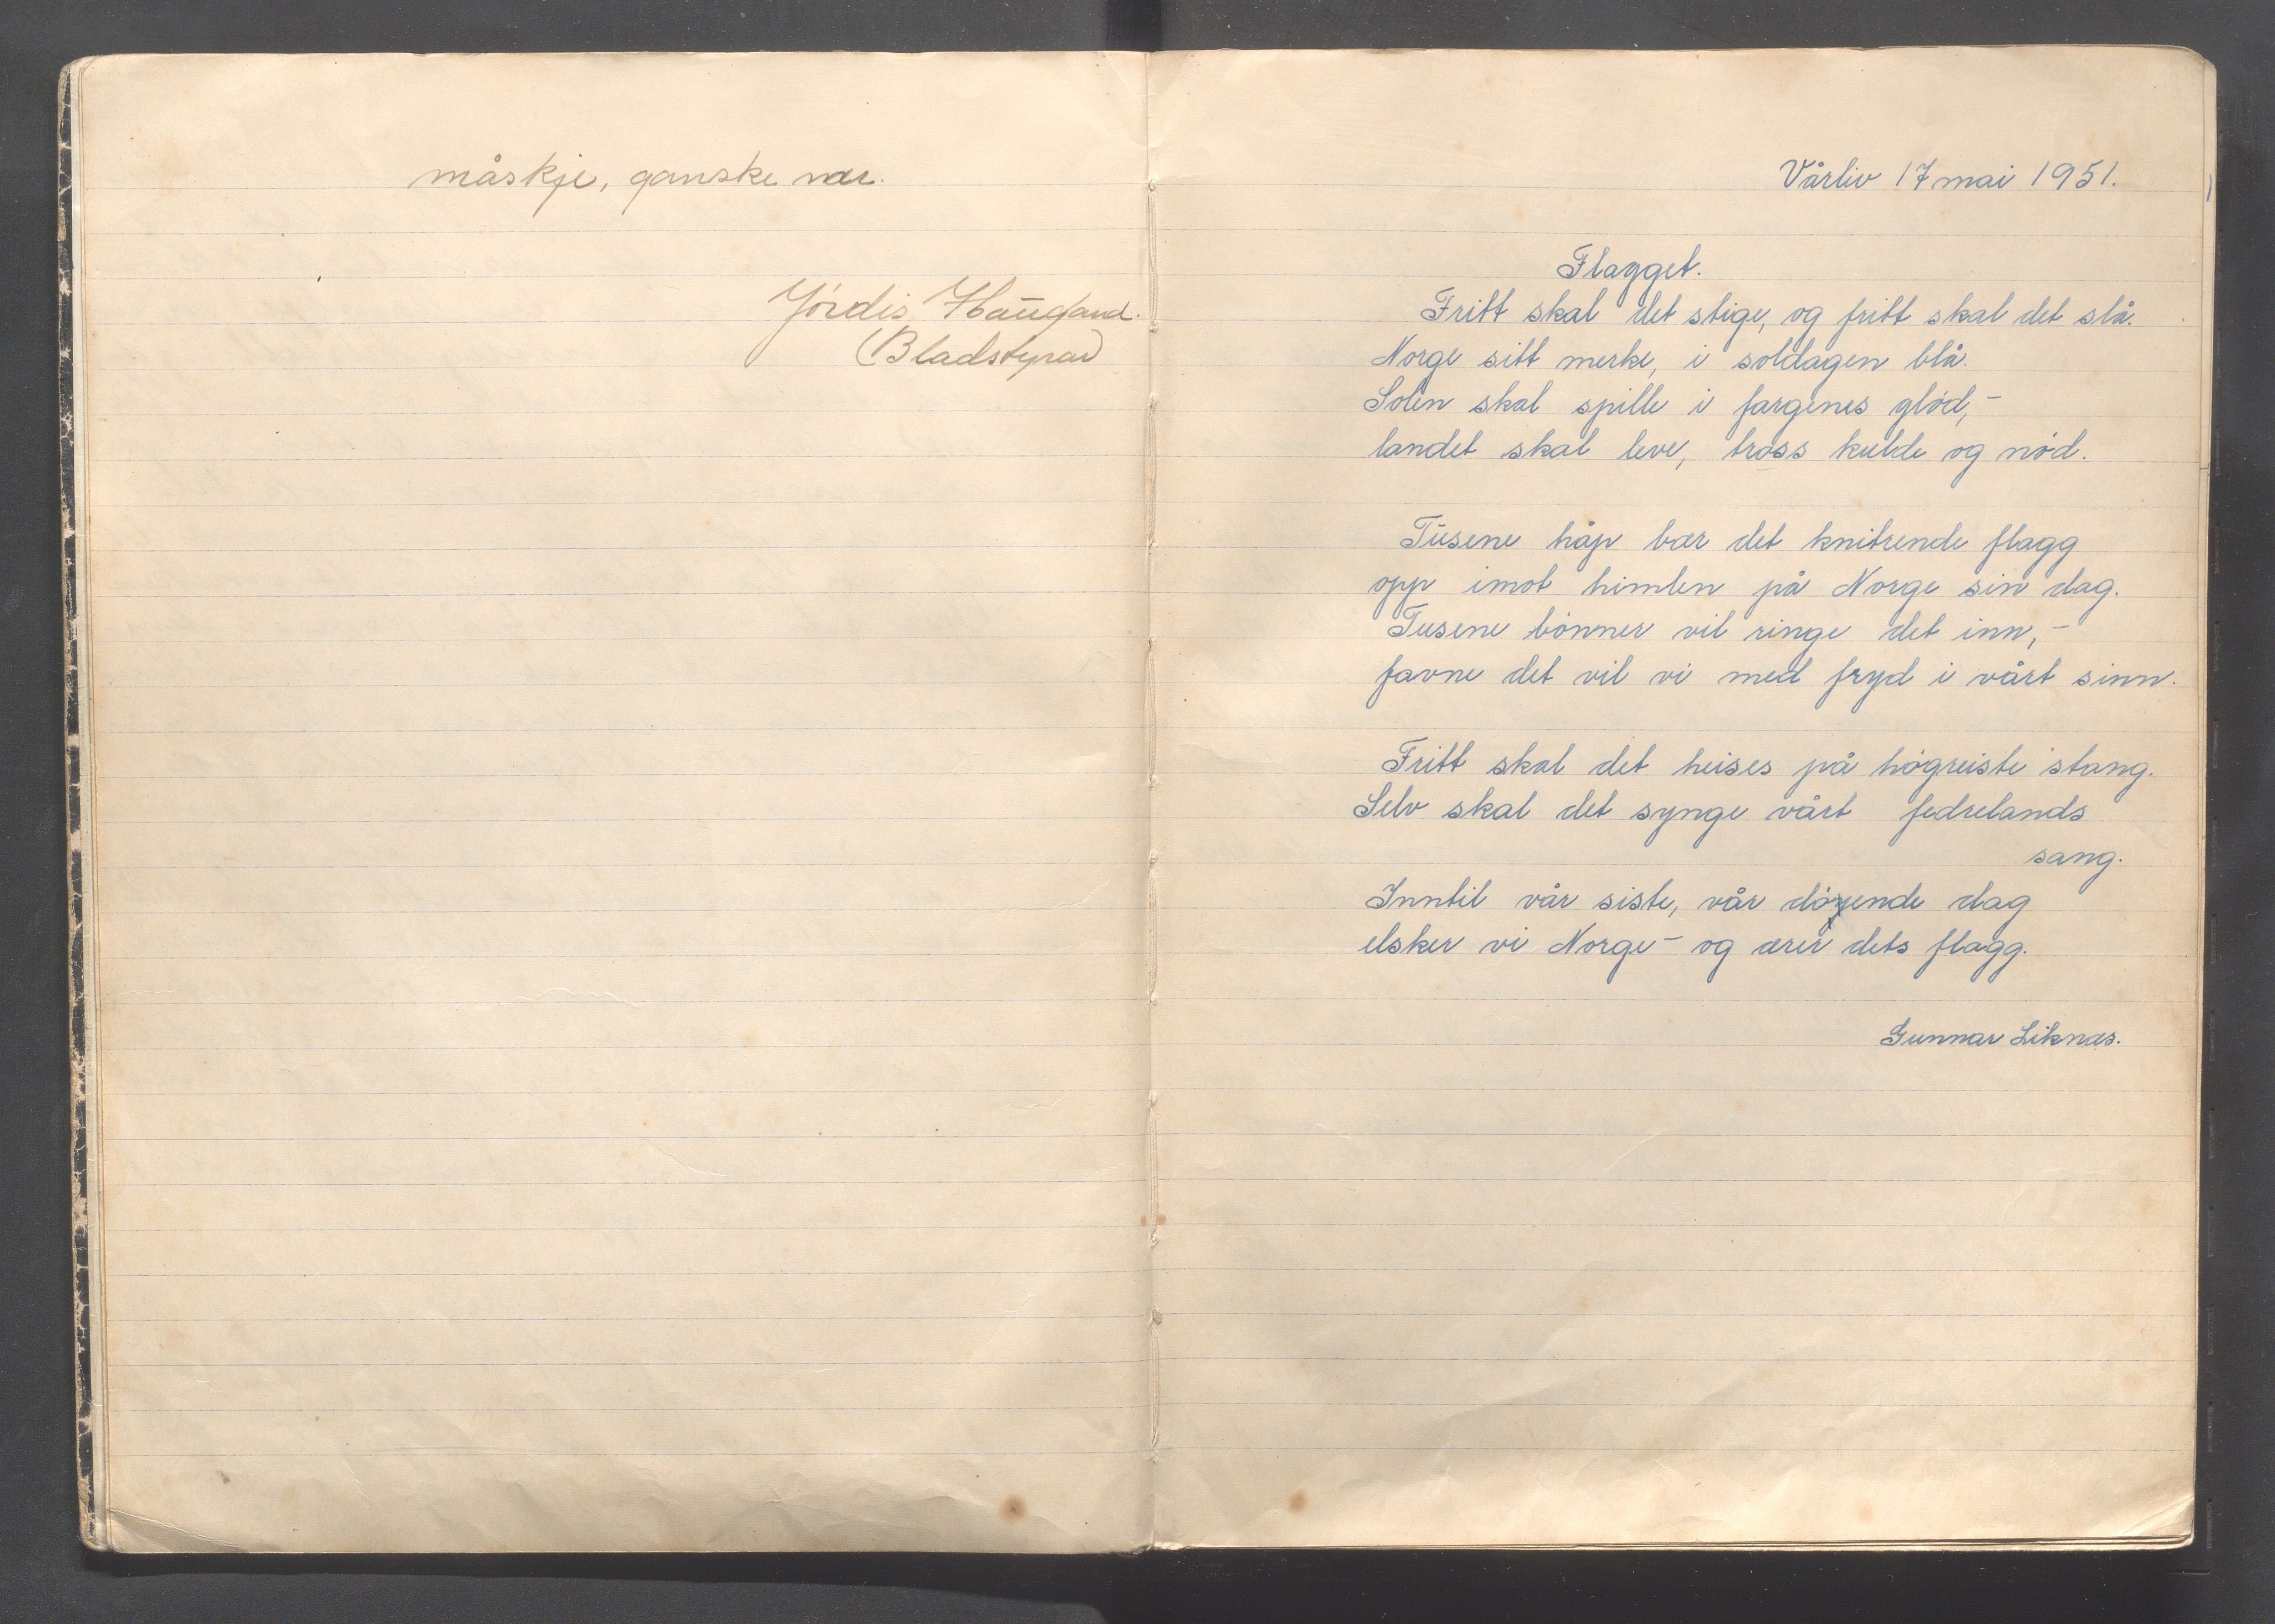 måskje, ganske nær.
Jórdis Haugland.
(Bladstyrar)
Vårliv 17 mai 1951.
Flagget.
Fritt skal det stige, og fritt skal det slå.
Norge sitt merke, i soldagen blå.
Solen skal spille i fargenes glód,-
landet skal leve, tross kulde og nód.
Tusene håp bær det knitrende flagg
opp imot himlen på Norge sin dag.
Tusene bónner vil ringe det inn,-
favne det vil vi med fryd i vårt sinn.
Fritt skal det heises på hógreiste stang.
Selv skal det synge vårt fedrelands
sang.
Inntil vår siste, vår dóyende dag
elsker vi Norge - og ærer dets flagg.
Gunnar Liknæs.